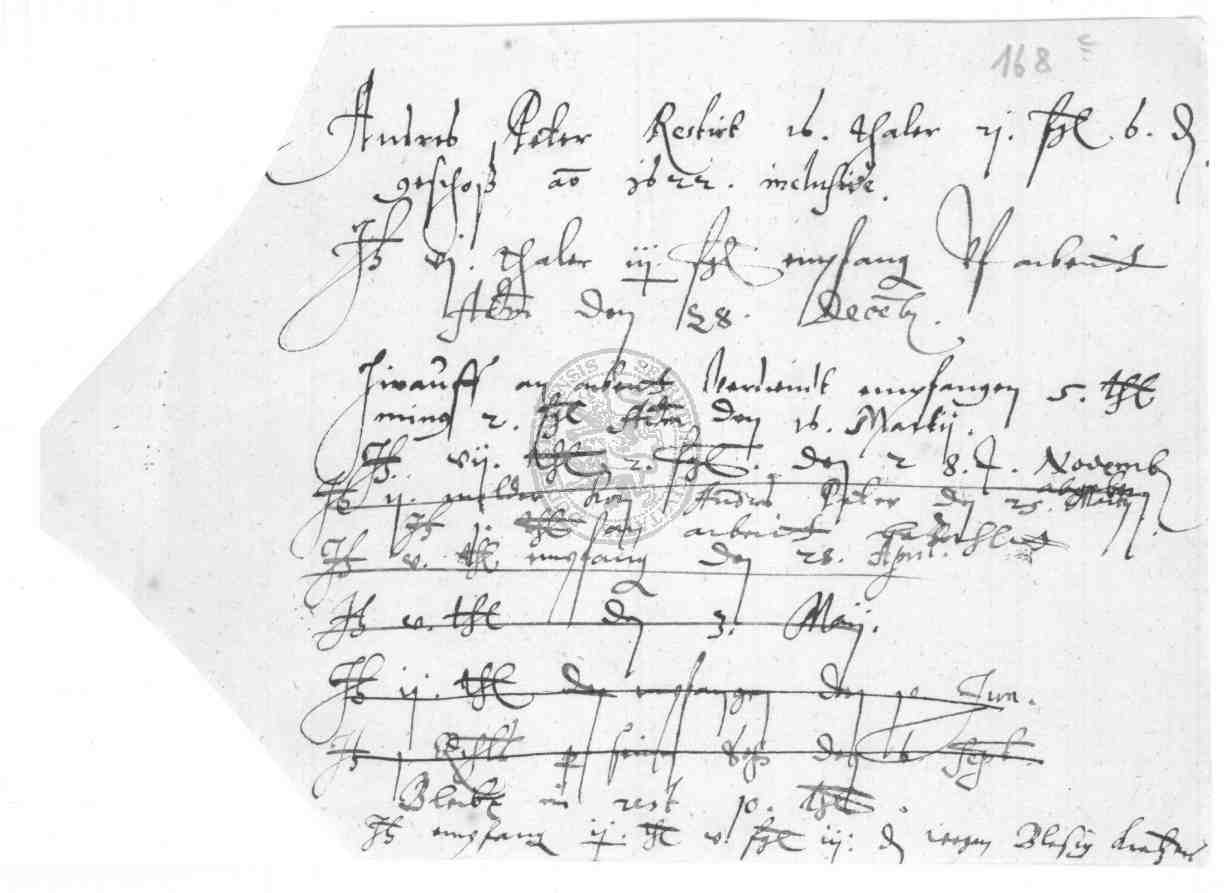 168
Andres Peker Restirt 16. thaler ij. sgl. 6. d
geschoß ao 1622. inclusive.
It vj. thaler iij sgl empfang Uf arbeit
Actum den 28. Decemb.
Hirauff an arbeit verdient empfangen 5. thl
minus 2. sgl Actum den 16. Martij.
It vij. thl 2. sgl. den 28. Novemb
It ij. von Andres Peker den 25. Martij
It thl an arbeit bezahlet
It v. thl empfang den 28. April.
It v. thl den 3. Maij.
It ij. thl den empfangen den 10 Jun.
It den 6 Sept.
Bleibt in rest 10. thl.
It empfang ij. thl v. sgl iij. d wegen Blasij